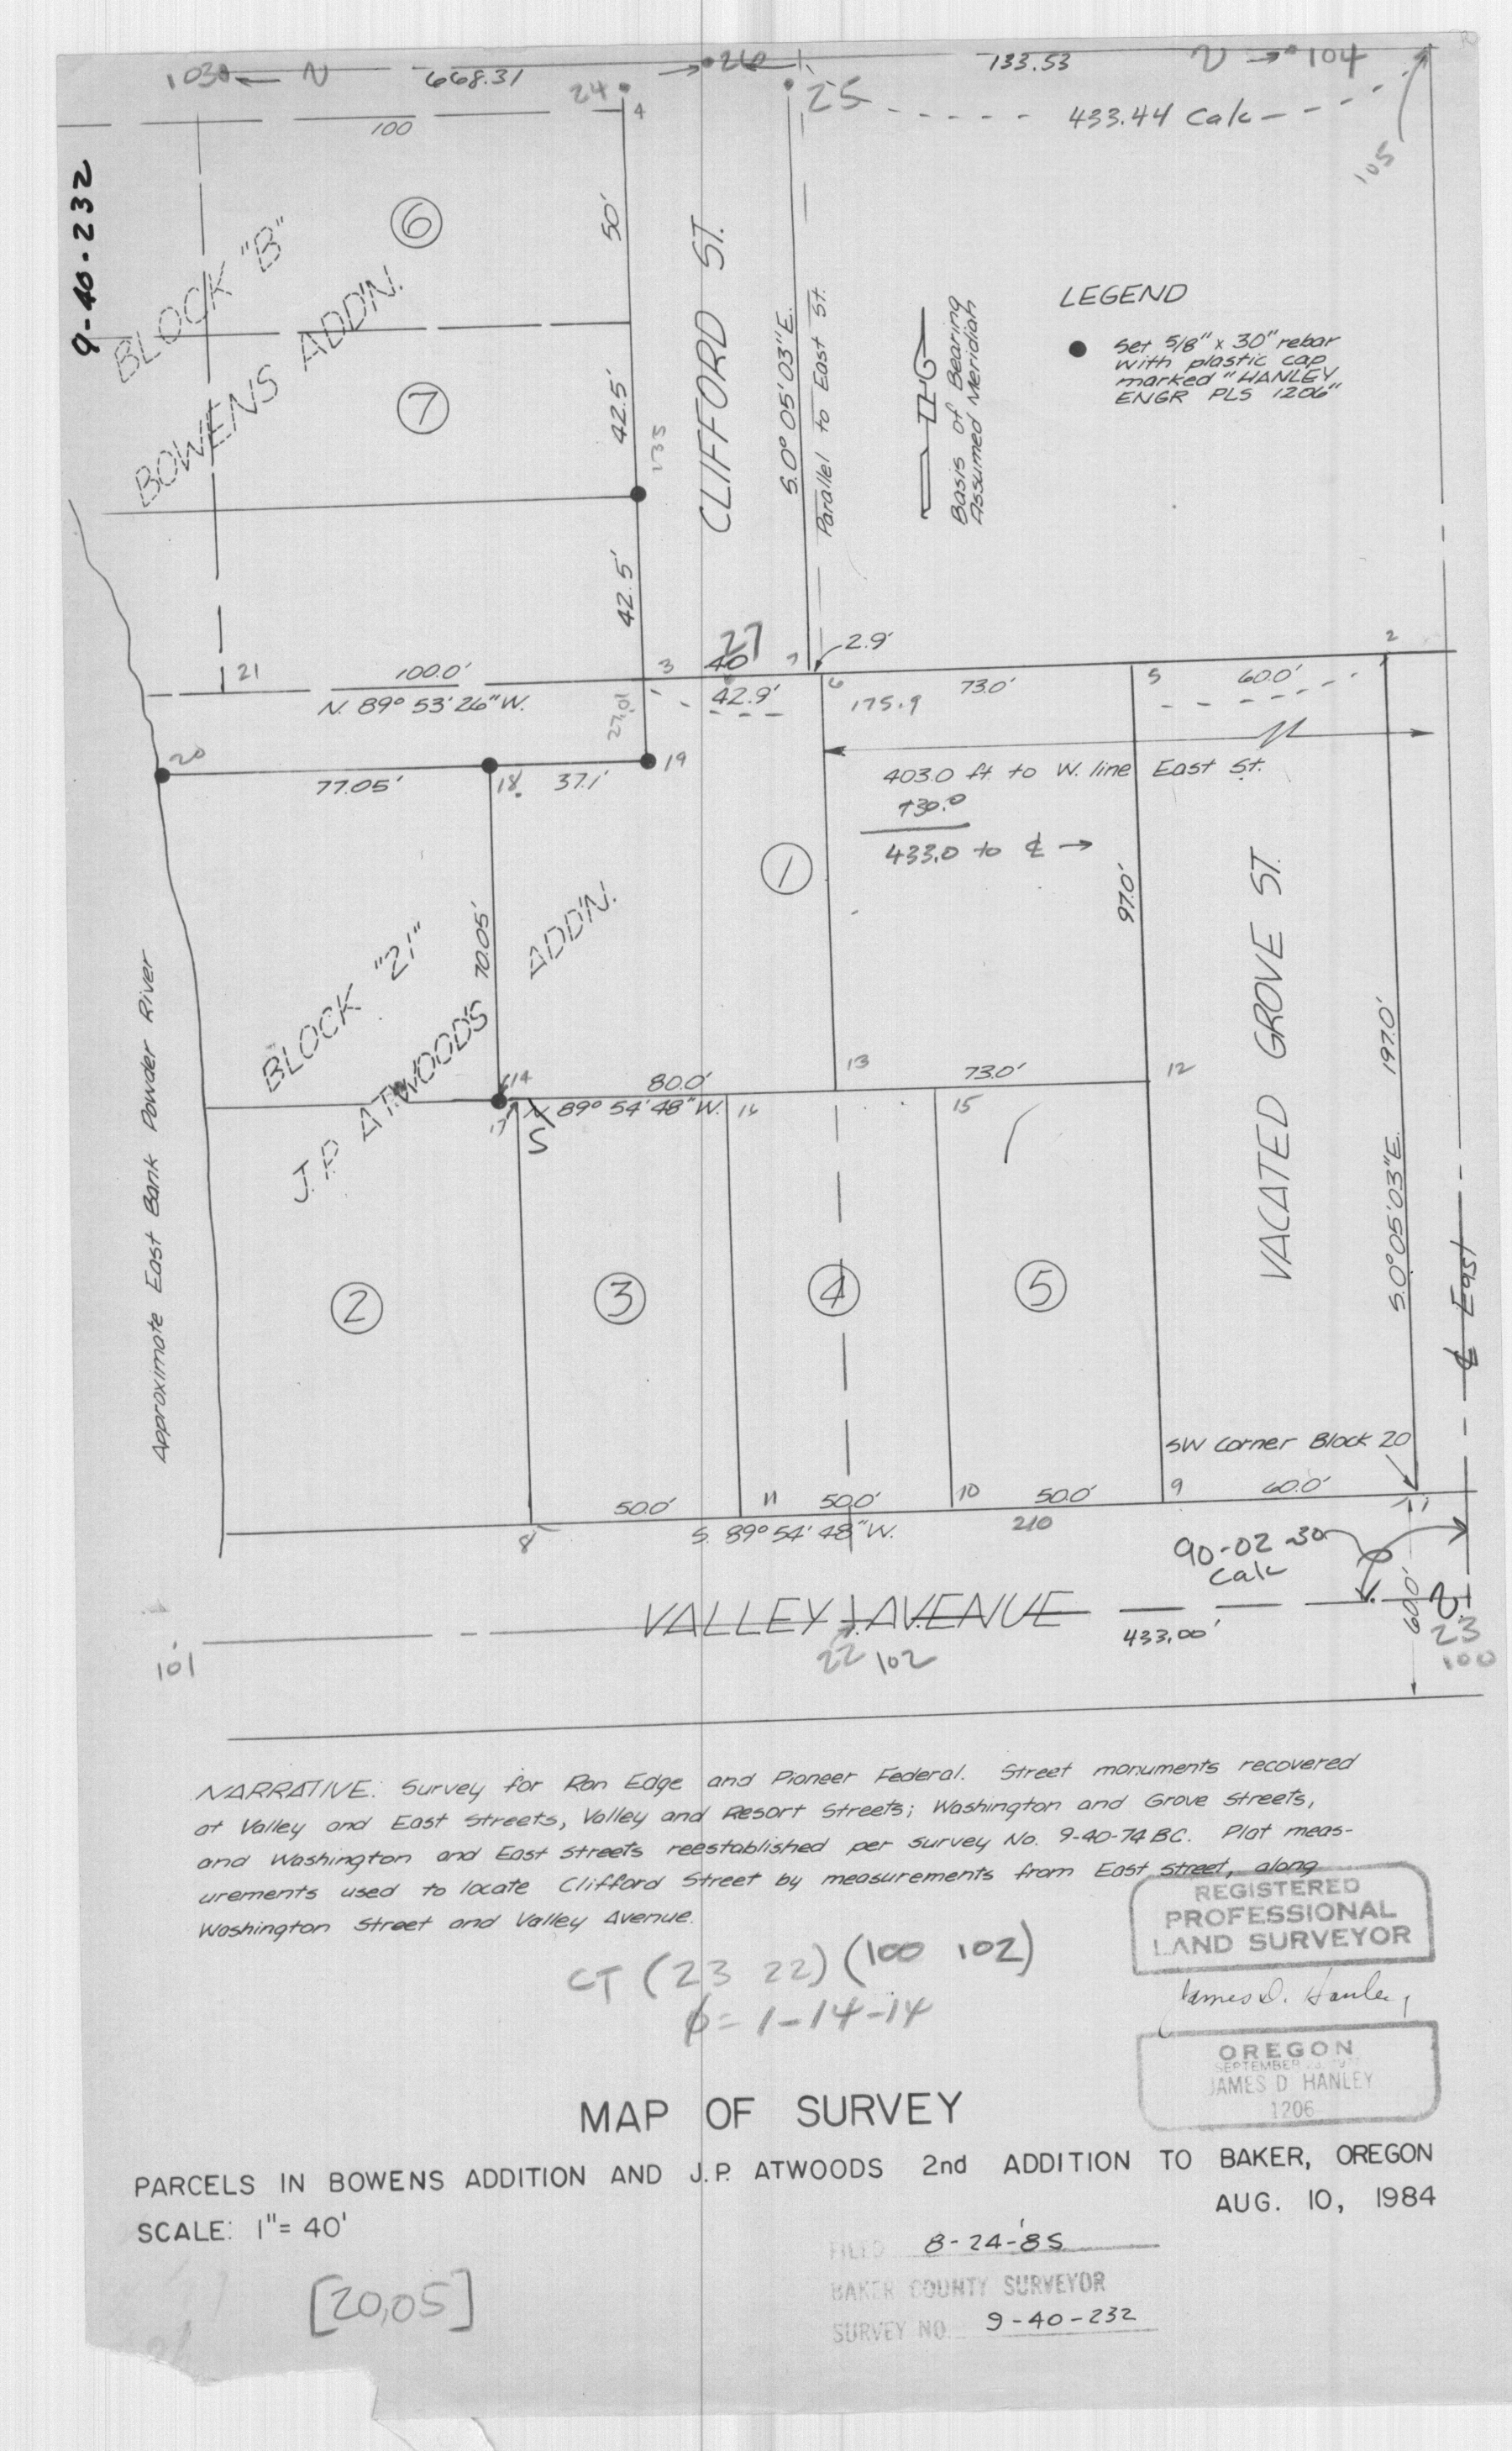 103 ← N 668.31 → 26 ← 133.53 N → 104
24 25 433.44 Calc
4
100
105
9-40-232
6
50'
BLOCK "B"
BOWENS ADDN.
7
42.5'
135
42.5'
CLIFFORD ST.
S. 0° 05' 03" E.
Parallel to East St.
Basis of Bearing
Assumed Meridian
LEGEND
Set 5/8" x 30" rebar
with plastic cap
marked "HANLEY
ENGR PLS 1206"
27
40
2.9'
2
21 100.0' 3 7
N. 89° 53' 26" W. 42.9' 6 73.0' 5 60.0'
27.01
175.9
20 19
77.05' 18 37.1'
403.0 ft to W. line East St.
+30.0
433.0 to ℄ →
1
97.0'
70.05'
BLOCK "21"
J.P. ATWOODS ADDN.
VACATED GROVE ST.
197.0'
S. 0° 05' 03" E.
Approximate East Bank Powder River
14 80.0' 13 73.0' 12
N 89° 54' 48" W. 16 15
17 S
2
3
4
5
℄ East
SW Corner Block 20
50.0' 11 50.0' 10 50.0' 9 60.0'
8 S. 89° 54' 48" W. 210
90-02-30
Calc
VALLEY AVENUE
433.00'
60.0'
23
100
101
22 102
NARRATIVE: Survey for Ron Edge and Pioneer Federal. Street monuments recovered
at Valley and East Streets, Valley and Resort Streets; Washington and Grove Streets,
and Washington and East Streets reestablished per survey No. 9-40-74 BC. Plat meas-
urements used to locate Clifford Street by measurements from East Street, along
Washington Street and Valley Avenue.
REGISTERED
PROFESSIONAL
LAND SURVEYOR
James D. Hanley
OREGON
JAMES D HANLEY
1206
CT (23 22) (100 102)
ϕ = 1-14-14
MAP OF SURVEY
PARCELS IN BOWENS ADDITION AND J.P. ATWOODS 2nd ADDITION TO BAKER, OREGON
AUG. 10, 1984
SCALE: 1" = 40'
FILED 8-24-'85
BAKER COUNTY SURVEYOR
SURVEY NO. 9-40-232
[20,05]